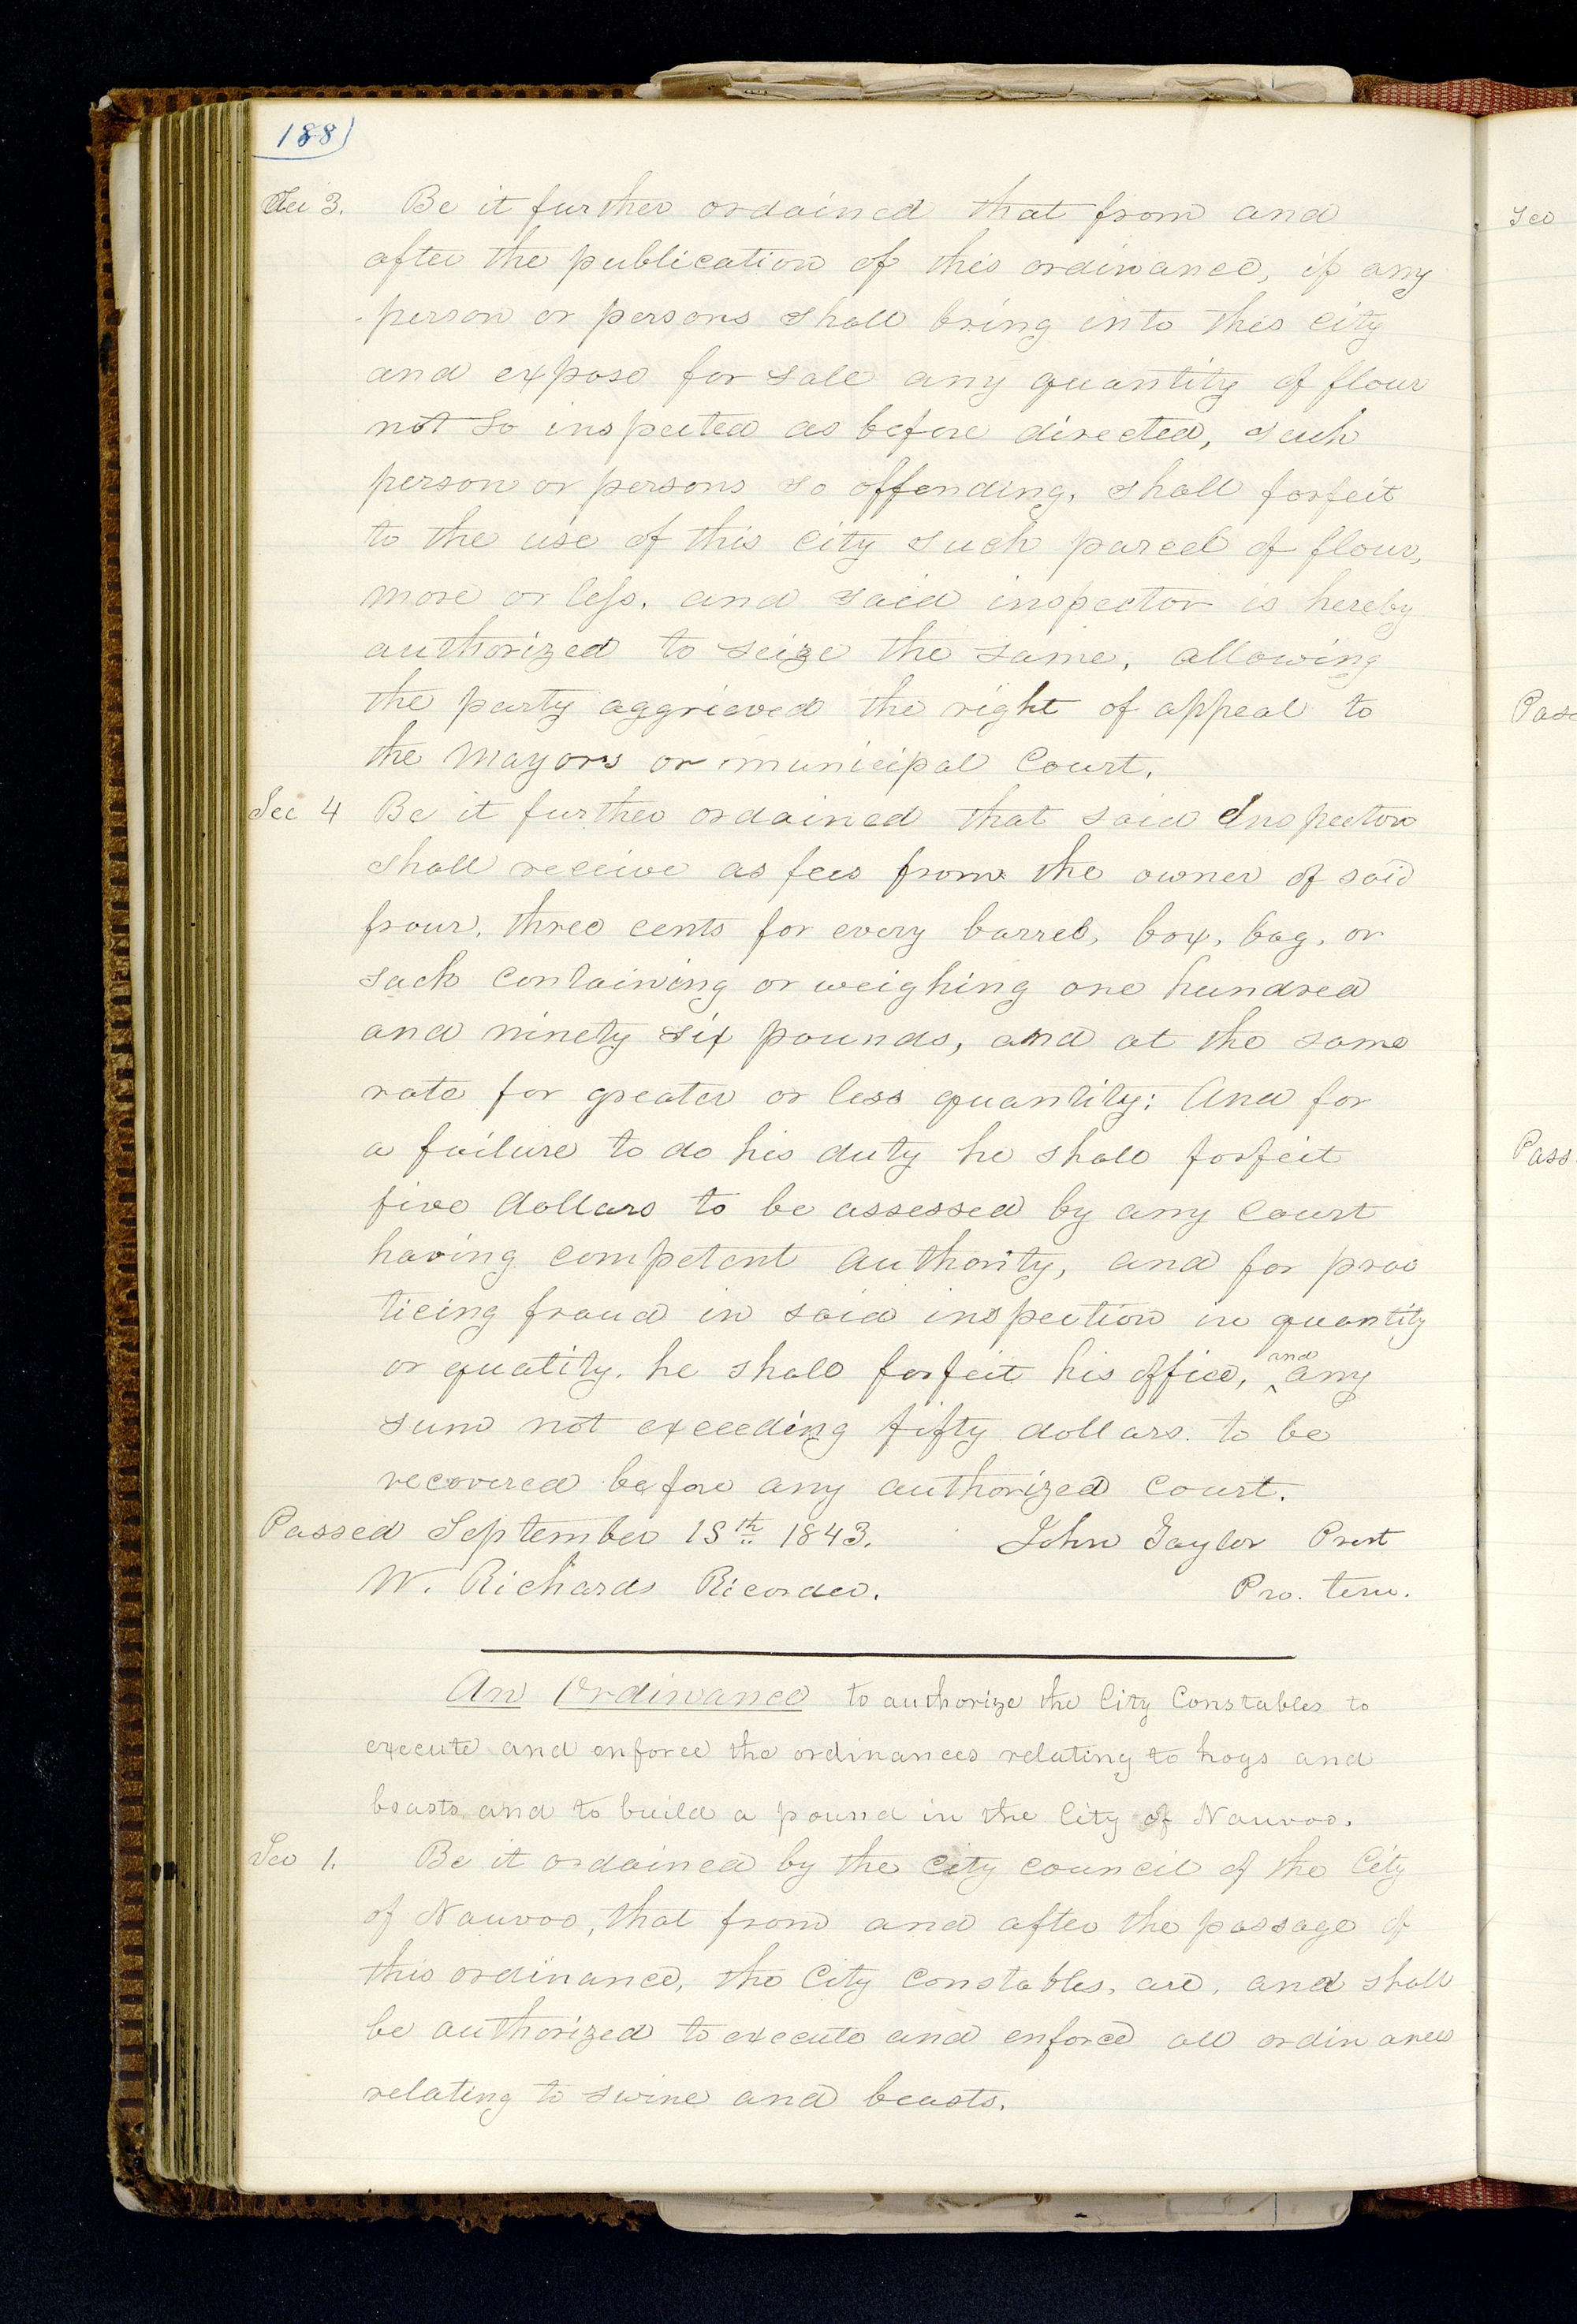 188)
Sec 3. Be it further ordained that from and
after the publication of this ordinance, if any
person or persons shall bring into this city
and expose for sale any quantity of flour
not so inspected as before directed, such
person or persons so offending, shall forfeit
to the use of this city such parcel of flour,
more or less, and said inspector is hereby
authorized to seize the same, allowing
the party aggrieved the right of appeal to
the Mayors or municipal Court.
Sec 4 Be it further ordained that said Inspector
shall receive as fees from the owner of said
frour, three cents for every barrel, box, bag, or
sack containing or weighing one hundred
and ninety six pounds, and at the same
rate for greater or less quantity: And for
a failure to do his duty he shall forfeit
five dollars to be assessed by any court
having competent authority, and for prac
ticing fraud in said inspection in quantity
or quatity. he shall forfeit his office, ^and any
sum not exceeding fifty dollars. to be
recovered before any authorized court.
Passed September 1 th 1843. John Taylor Prest
W. Richards Recorder. Pro. tem.
An Ordinance to authorize the City Constables to
execute and enforce the ordinances relating to hogs and
beasts and to build a pound in the City of Nauvoo.
Sec 1. Be it ordained by the City council of the City
of Nauvoo, that from and after the passage of
this ordinance, the City Constables, are, and shall
be authorized to execute and enforce all ordinances
relating to swine and beasts.
Sec
Pass
Pass